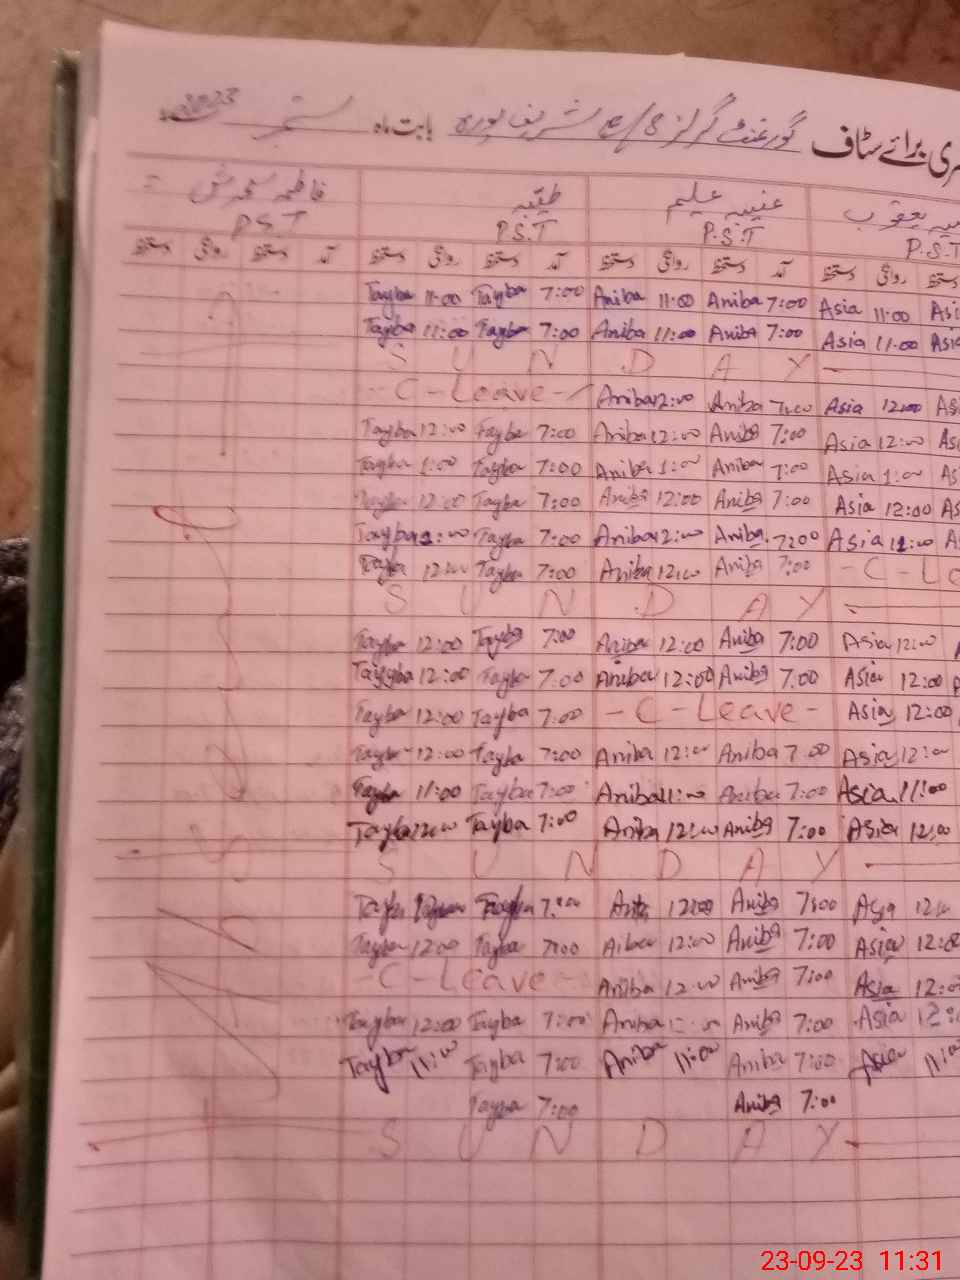 ستمبر 2023 بابت ماہ گورنمنٹ گرلز شریف پورہ برائے سٹاف
فاطمہ طیبہ علیم یعقوب
P.S.T P.S.T P.S.T P.S.T
دستخط روانگی دستخط آمد دستخط روانگی دستخط آمد دستخط روانگی دستخط آمد دستخط روانگی دستخط
Tayba 11:00 Tayba 7:00 Aniba 11:00 Aniba 7:00 Asia 11:00 Asi
Tayba 11:00 Tayba 7:00 Aniba 11:00 Aniba 7:00 Asia 11.00 Asi
S U N D A Y
- C - Leave - Aniba 12:00 Aniba 7:00 Asia 12:00 As
Tayba 12:00 Tayba 7:00 Aniba 12:00 Aniba 7:00 Asia 12:00 As
Tayba 1:00 Tayba 7:00 Aniba 1:00 Aniba 7:00 Asia 1:00 As
Tayba 12:00 Tayba 7:00 Aniba 12:00 Aniba 7:00 Asia 12:00 As
Tayba 12:00 Tayba 7:00 Aniba 12:00 Aniba 7:00 Asia 12:00 A
Tayba 12:00 Tayba 7:00 Aniba 12:00 Aniba 7:00 - C - Le
S U N D A Y
Tayba 12:00 Tayba 7:00 Aniba 12:00 Aniba 7:00 Asia 12:00
Tayyba 12:00 Tayba 7.00 Aniba 12:00 Aniba 7.00 Asia 12:00
Tayba 12:00 Tayba 7:00 - C - Leave - Asia 12:00
Tayba 12:00 Tayba 7:00 Aniba 12:00 Aniba 7.00 Asia 12:00
Tayba 11:00 Tayba 7:00 Aniba 11:00 Aniba 7:00 Asia 11:00
Tayba 12:00 Tayba 7:00 Aniba 12:00 Aniba 7:00 Asia 12:00
S U N D A Y
Tayba Tayba 7:00 12:00 Aniba 7:00 Asia 12:00
Tayba 12:00 Tayba 7:00 Aiba 12:00 Aniba 7:00 Asia 12:00
- C - Leave Aniba 12:00 Aniba 7:00 Asia 12:00
Tayba 12:00 Tayba 7:00 Aniba Aniba 7:00 Asia 12:00
Tayba 11:00 Tayba 7:00 Aniba 11:00 Aniba 7:00 Asia 11:00
Tayba 7:00 Aniba 7:00
S U N D A Y
23-09-23 11:31